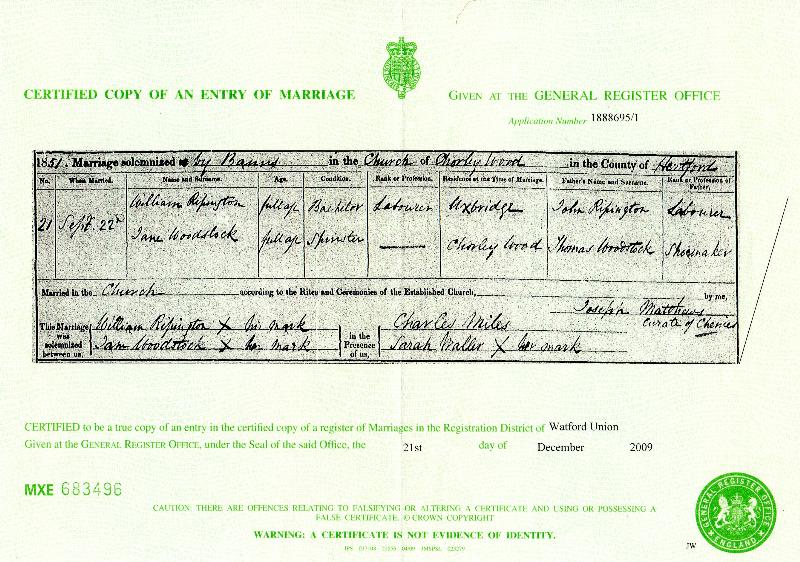 CERTIFIED COPY OF AN ENTRY OF MARRIAGE
GIVEN AT THE GENERAL REGISTER OFFICE
Application Number 1888695/1
1851. Marriage solemnized by Banns in the Church of Chorley Wood in the County of Hertford
No. When Married. Name and Surname. Age. Condition. Rank or Profession. Residence at the Time of Marriage. Father's Name and Surname. Rank or Profession of Father.
21 Sept. 22d
William Ripington full age Bachelor Labourer Uxbridge John Ripington Labourer
Jane Woodstock full age Spinster Chorley Wood Thomas Woodstock Shoemaker
Married in the Church according to the Rites and Ceremonies of the Established Church, by me,
Joseph Matthews
Curate of Chenies
This Marriage was solemnized between us,
William Ripington X his mark
Jane Woodstock X her mark
in the Presence of us,
Charles Miles
Sarah Waller X her mark
CERTIFIED to be a true copy of an entry in the certified copy of a register of Marriages in the Registration District of Watford Union
Given at the GENERAL REGISTER OFFICE, under the Seal of the said Office, the 21st day of December 2009
MXE 683496
CAUTION: THERE ARE OFFENCES RELATING TO FALSIFYING OR ALTERING A CERTIFICATE AND USING OR POSSESSING A
FALSE CERTIFICATE. © CROWN COPYRIGHT
WARNING: A CERTIFICATE IS NOT EVIDENCE OF IDENTITY.
GENERAL REGISTER OFFICE
ENGLAND
JW